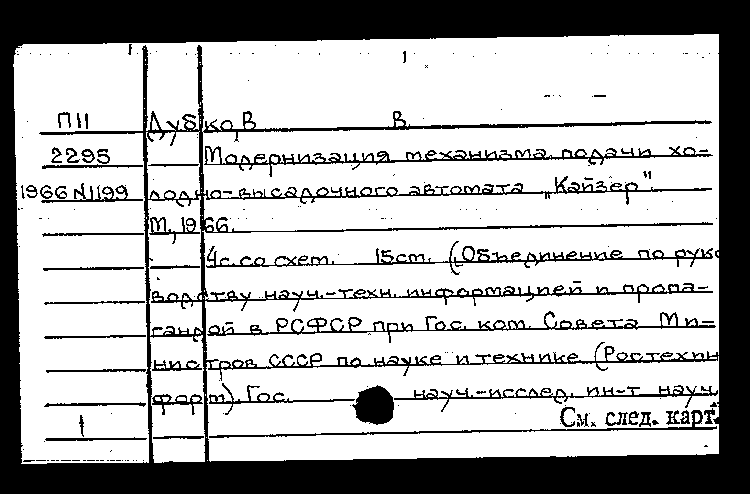 П11 Дубко, В. В.
2295 Модернизация механизма подачи хо=
1966 N1199 лодно-высадочного автомата „Кайзер".
М., 1966.
4с. со схем. 15см. (Объединение по руко
водству науч.-техн. информацией и пропа-
гандой в РСФСР при Гос. ком. Совета Ми=
нистров СССР по науке и технике (Ростехин
форм). Гос. науч.-исслед. ин-т науч.
1 См. след. карт.